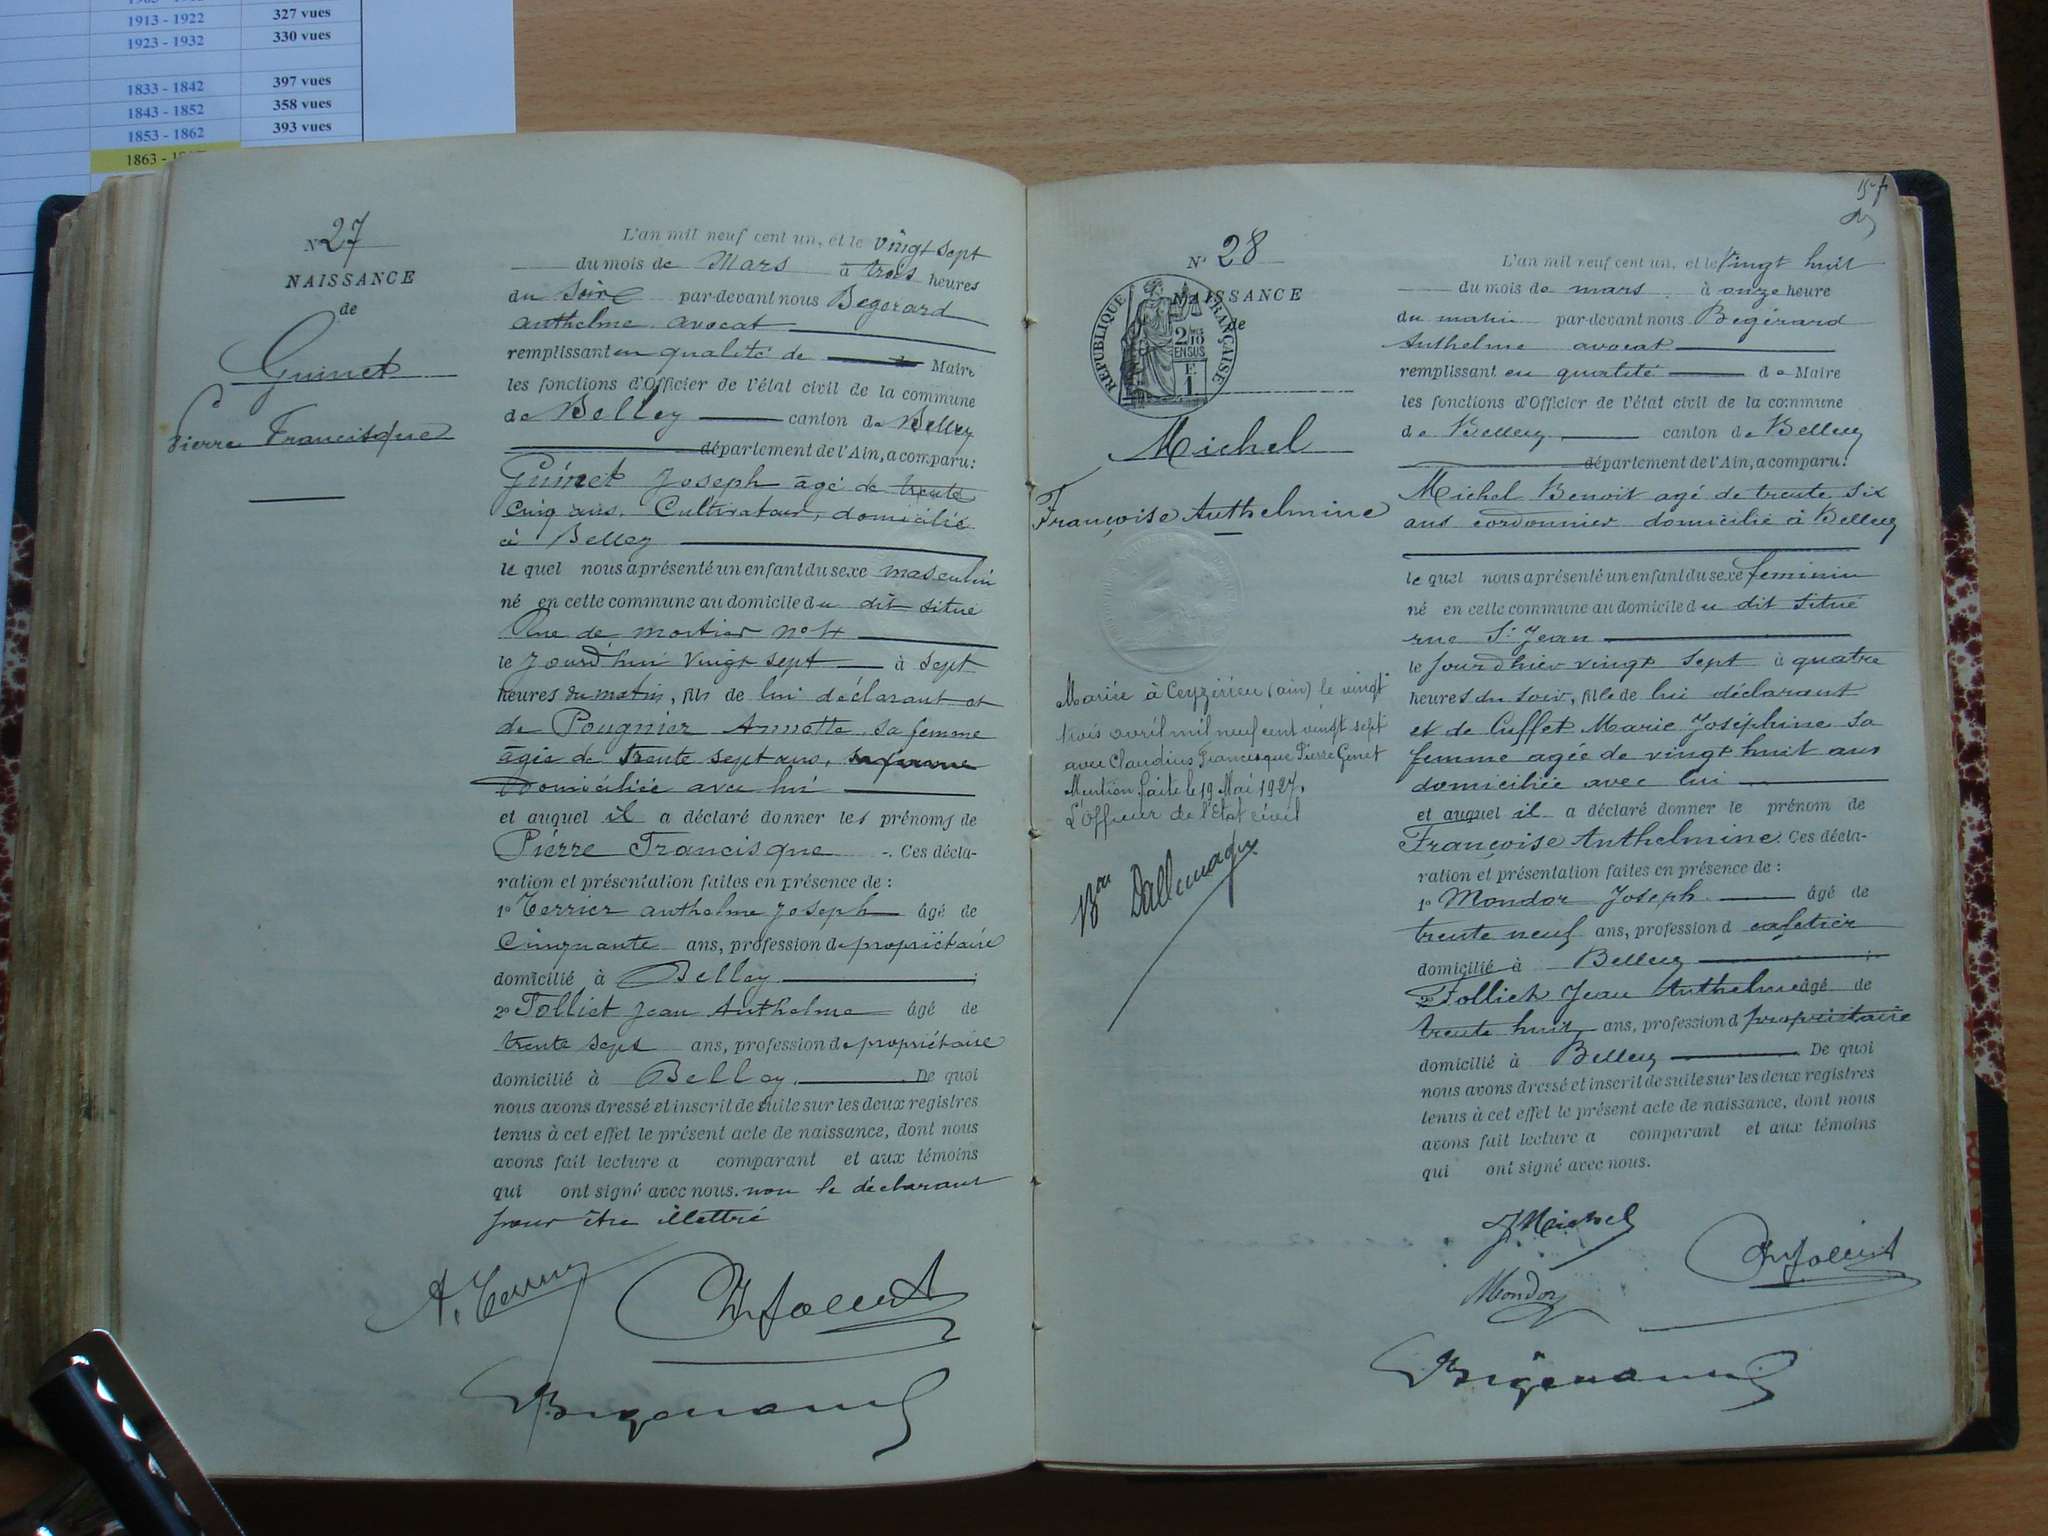 1913 - 1922 327 vues
1923 - 1932 330 vues
1833 - 1842 397 vues
1843 - 1852 358 vues
1853 - 1862 393 vues
1863 -
N° 27
NAISSANCE
de
Guinet
Pierre Francisque
L'an mil neuf cent un, et le vingt sept
du mois de Mars à trois heures
du soir par-devant nous Begerard
anthelme avocat
remplissant en qualité de Maire
les fonctions d'Officier de l'état civil de la commune
de Belley canton de Belley
département de l'Ain, a comparu:
Guinet Joseph agé de trente
cinq ans, Cultivateur, domicilié
à Belley
le quel nous a présenté un enfant du sexe masculin
né en cette commune au domicile du dit situé
Rue de mortier n° 4
le jourd'hui vingt sept à sept
heures du matin, fils de lui déclarant et
de Pougnier Annette sa femme
âgée de trente sept ans, sa femme
Domiciliée avec lui
et auquel il a déclaré donner les prénoms de
Piérre Francisque. Ces décla-
ration et présentation faites en présence de :
1° Terrier anthelme Joseph âgé de
Cinquante ans, profession de propriétaire
domicilié à Belley ;
2° Folliet Jean Anthelme âgé de
trente sept ans, profession de propriétaire
domicilié à Belley. De quoi
nous avons dressé et inscrit de suite sur les deux registres
tenus à cet effet le présent acte de naissance, dont nous
avons fait lecture a comparant et aux témoins
qui ont signé avec nous. non le déclarant
pour être illettré
N° 28
NAISSANCE
de
RÉPUBLIQUE FRANÇAISE
2/10
EN SUS
E
1
Michel
Françoise Anthelmine
Mariée à Ceyzérieu (ain) le vingt
trois avril mil neuf cent vingt sept
avec Claudius Francisque Pierre Genet
Mention faite le 19 Mai 1927.
L'Officier de l'Etat civil
Bon Dallemagne
L'an mil neuf cent un, et le Vingt huit
du mois de mars à onze heure
du matin par-devant nous Begérard
Anthelme avocat
remplissant en qualité de Maire
les fonctions d'Officier de l'état civil de la commune
de Belley canton de Belley
département de l'Ain, a comparu:
Michel Benoit agé de trente six
ans cordonnier domicilié à Belley
le quel nous a présenté un enfant du sexe feminin
né en cette commune au domicile du dit situé
rue St Jean
le jourd'hier vingt sept à quatre
heures du soir, fille de lui déclarant
et de Cuffet Marie Joséphine sa
femme agée de vingt huit ans
domiciliée avec lui
et auquel il a déclaré donner le prénom de
Françoise Anthelmine. Ces décla-
ration et présentation faites en présence de :
1° Mondor Joseph âgé de
trente neuf ans, profession d cafetier
domicilié à Belley ;
2° Folliet Jean Anthelme âgé de
trente huit ans, profession d propriétaire
domicilié à Belley De quoi
nous avons dressé et inscrit de suite sur les deux registres
tenus à cet effet le présent acte de naissance, dont nous
avons fait lecture a comparant et aux témoins
qui ont signé avec nous.
J. Michel
Mondor